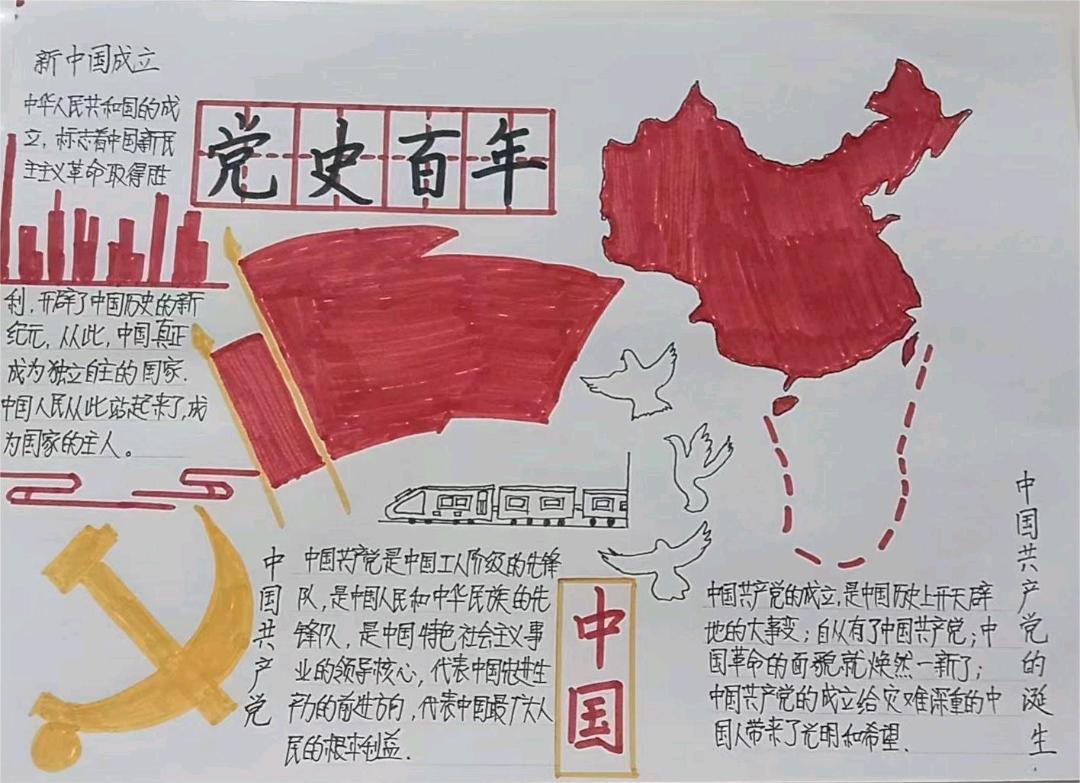 新中国成立
中华人民共和国的成
立，标志着中国新民
主主义革命取得胜
利，开辟了中国历史的新
纪元，从此，中国真正
成为独立自主的国家.
中国人民从此站起来了,成
为国家的主人。
党史百年
中国共产党
中国共产党是中国工人阶级的先锋
队，是中国人民和中华民族的先
锋队，是中国特色社会主义事
业的领导核心，代表中国先进生
产力的前进方向，代表中国最广大人
民的根本利益.
中国
中国共产党的成立,是中国历史上开天辟
地的大事变；自从有了中国共产党；中
国革命的面貌就焕然一新了；
中国共产党的成立给灾难深重的中
国人带来了光明和希望.
中国共产党的诞生.